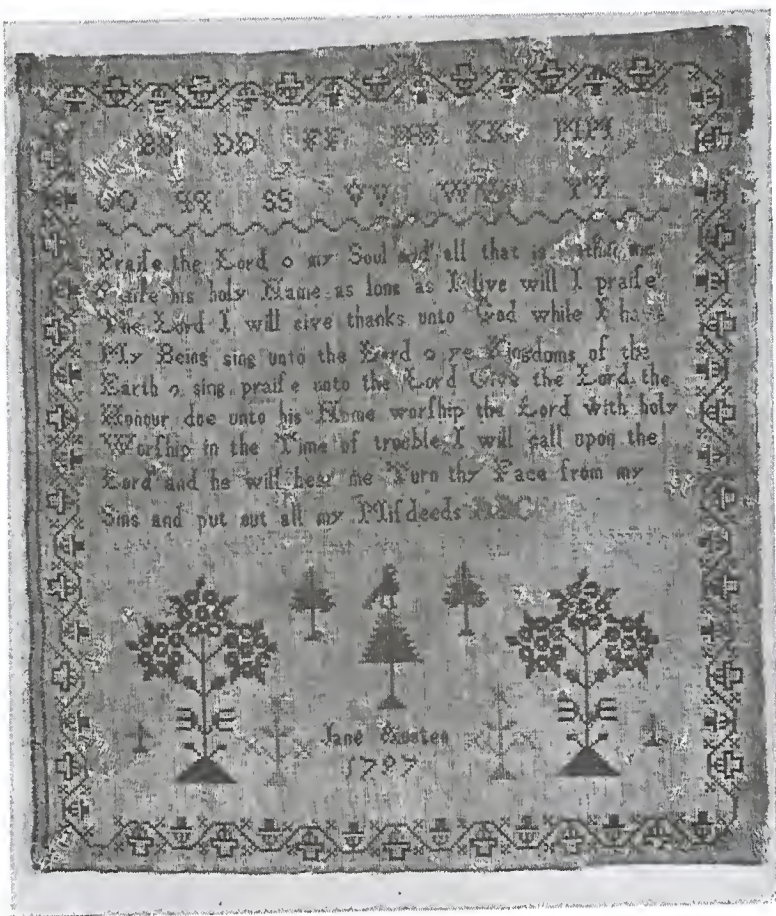 BB DD FF HH KK MM
OO QQ SS VV WW YY
Praise the Lord o my Soul and all that is within me
Praise his holy Name as long as I live will I praise
The Lord I will give thanks unto God while I have
My Being sing unto the Lord o ye Kingdoms of the
Earth o sing praise unto the Lord Give the Lord the
Honour due unto his Name worship the Lord with holy
Worship in the Time of trouble I will call upon the
Lord and he will hear me Turn thy Face from my
Sins and put out all my Misdeeds
Jane Austen
1797